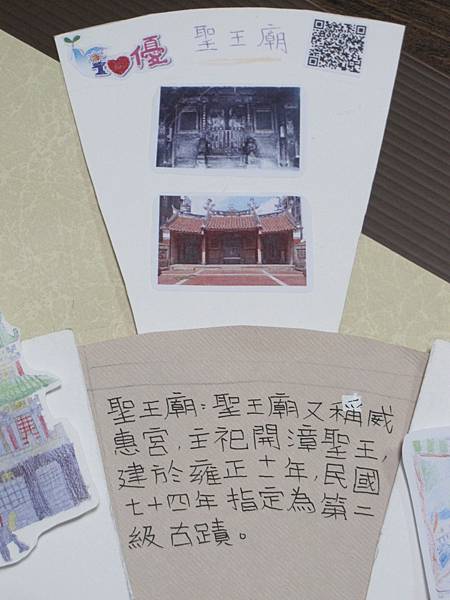 優
聖王廟
聖王廟:聖王廟又稱威
惠宮,主祀開漳聖王,
建於雍正十年,民國
七十四年指定為第二
級古蹟。